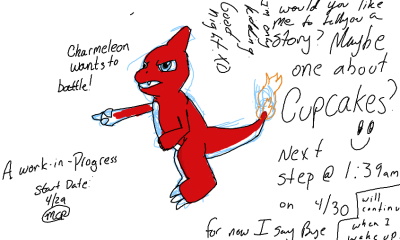 Charmeleon
wants to
battle!
A work-in-Progress
Start Date:
4/29
MCP
Good
night. XD
I'm only
kidding.
would you like
me to tell you a
Story? Maybe
one about
Cupcakes?
Next
step @ 1:39am
on 4/30
for now I say Bye
will
continue
when I
wake up.